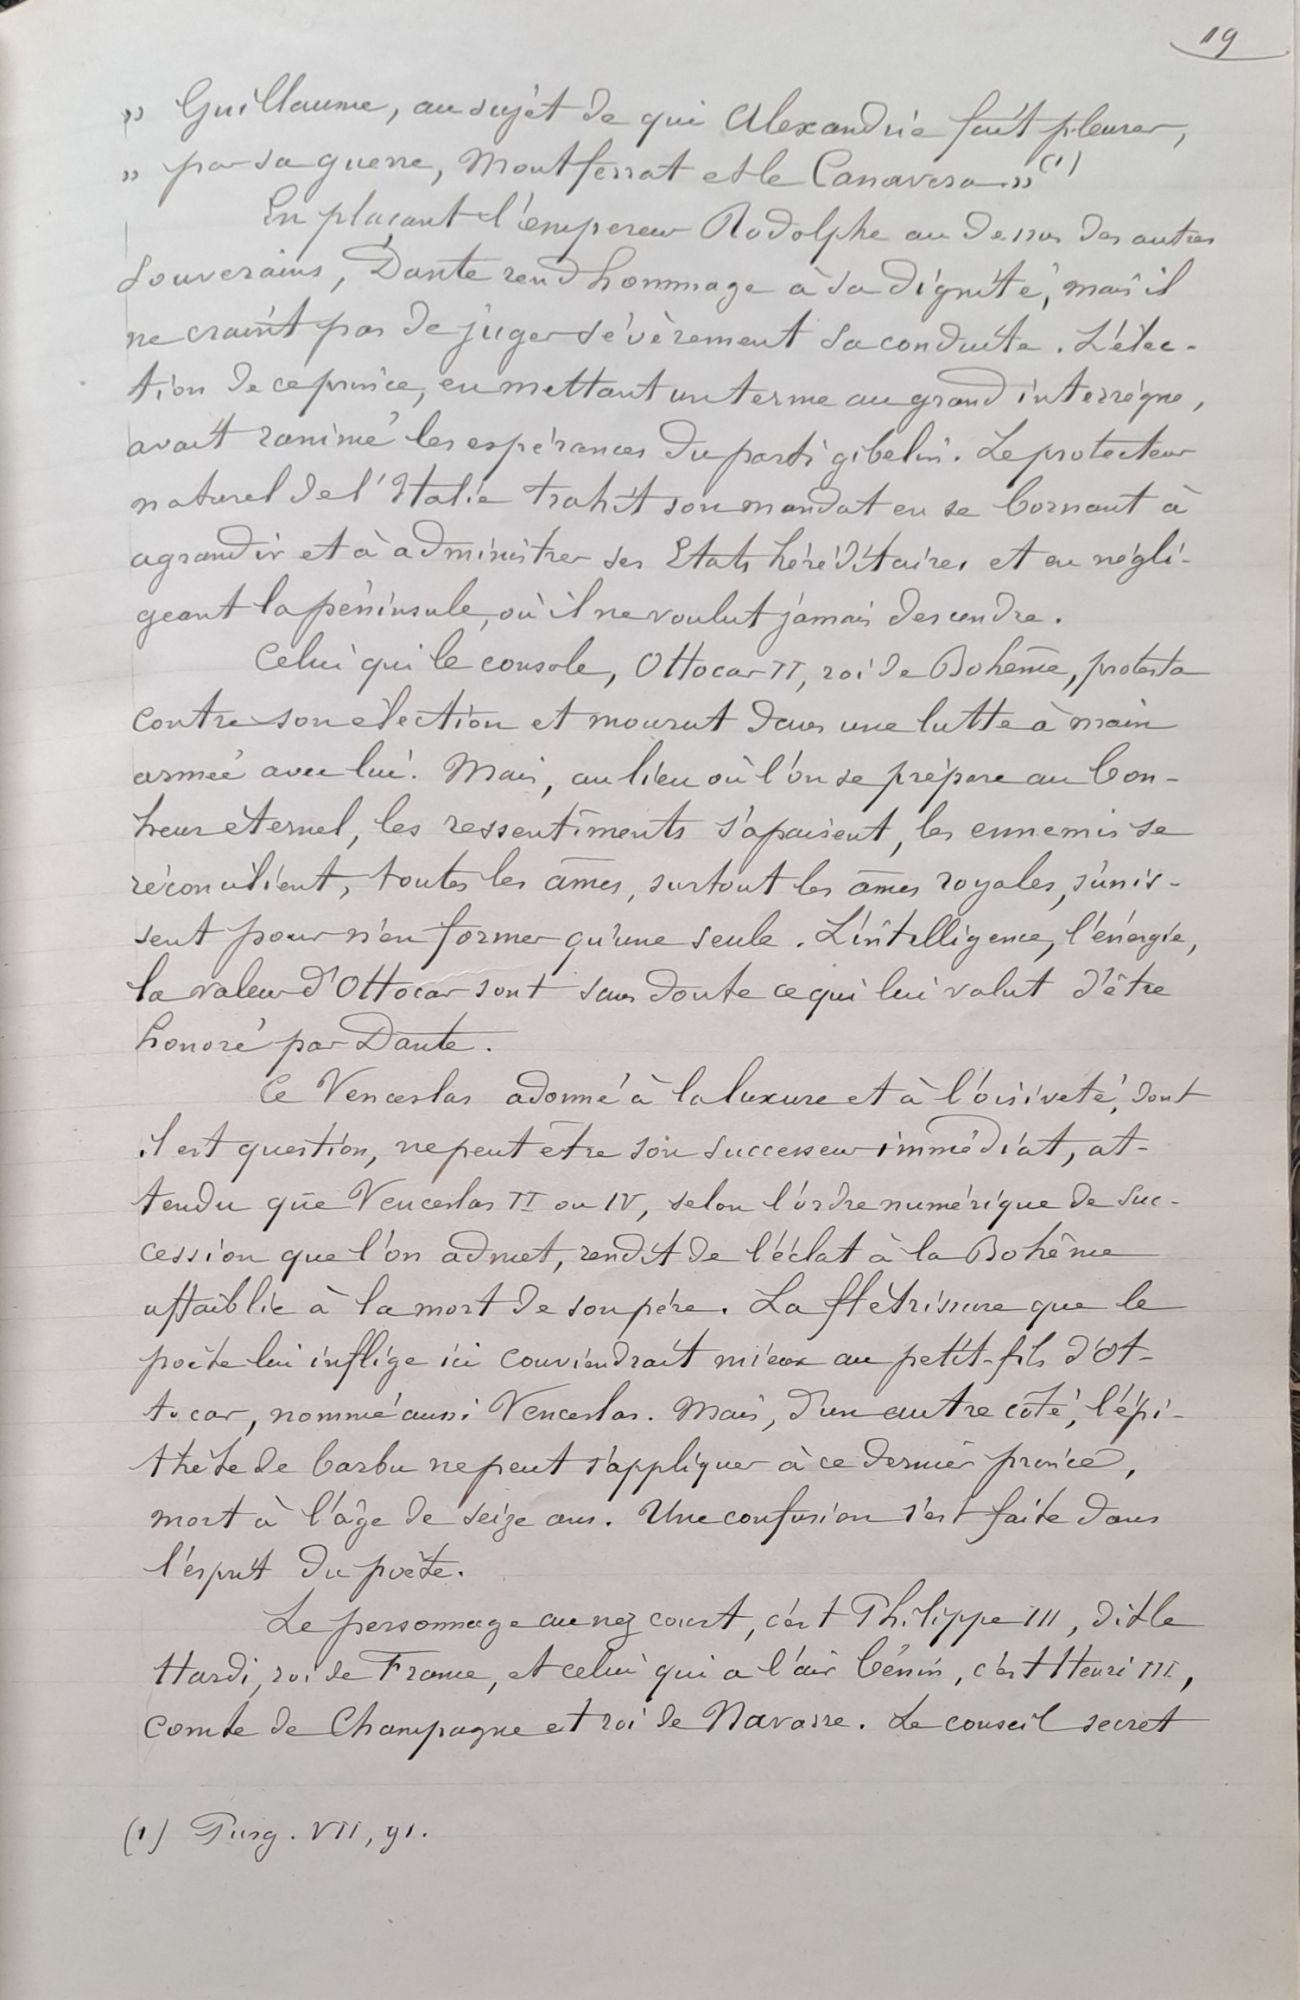 19
» Guillaume, au sujet de qui Alexandrie fait pleurer,
» par sa guerre, Montferrat et le Canavesa.» (1)
En plaçant l'empereur Rodolphe au dessus des autres
souverains, Dante rend hommage à sa dignité, mais il
ne craint pas de juger sévèrement sa conduite. L'élec-
tion de ce prince, en mettant un terme au grand interrègne,
avait ranimé les espérances du parti gibelin. Le protecteur
naturel de l'Italie trahit son mandat en se bornant à
agrandir et à administrer ses Etats héréditaires et en négli-
geant la péninsule, où il ne voulut jamais descendre.
Celui qui le console, Ottocar II, roi de Bohême, protesta
contre son élection et mourut dans une lutte à main
armée avec lui. Mais, au lieu où l'on se prépare au bon-
heur éternel, les ressentiments s'apaisent, les ennemis se
réconcilient, toutes les âmes, surtout les âmes royales, s'unis-
sent pour n'en former qu'une seule. L'intelligence, l'énergie,
la valeur d'Ottocar sont sans doute ce qui lui valut d'être
honoré par Dante.
Ce Venceslas adonné à la luxure et à l'oisiveté, dont
il est question, ne peut être son successeur immédiat, at-
tendu que Venceslas II ou IV, selon l'ordre numérique de suc-
cession que l'on admet, rendit de l'éclat à la Bohême
affaiblie à la mort de son père. La flétrissure que le
poète lui inflige ici conviendrait mieux au petit-fils d'Ot-
tocar, nommé aussi Venceslas. Mais, d'un autre côté, l'épi-
thète de barbu ne peut s'appliquer à ce dernier prince,
mort à l'âge de seize ans. Une confusion s'est faite dans
l'esprit du poète.
Le personnage au nez court, c'est Philippe III, dit le
Hardi, roi de France, et celui qui a l'air bénin, c'est Henri III,
comte de Champagne et roi de Navarre. Le conseil secret
(1) Purg. VII, 91.